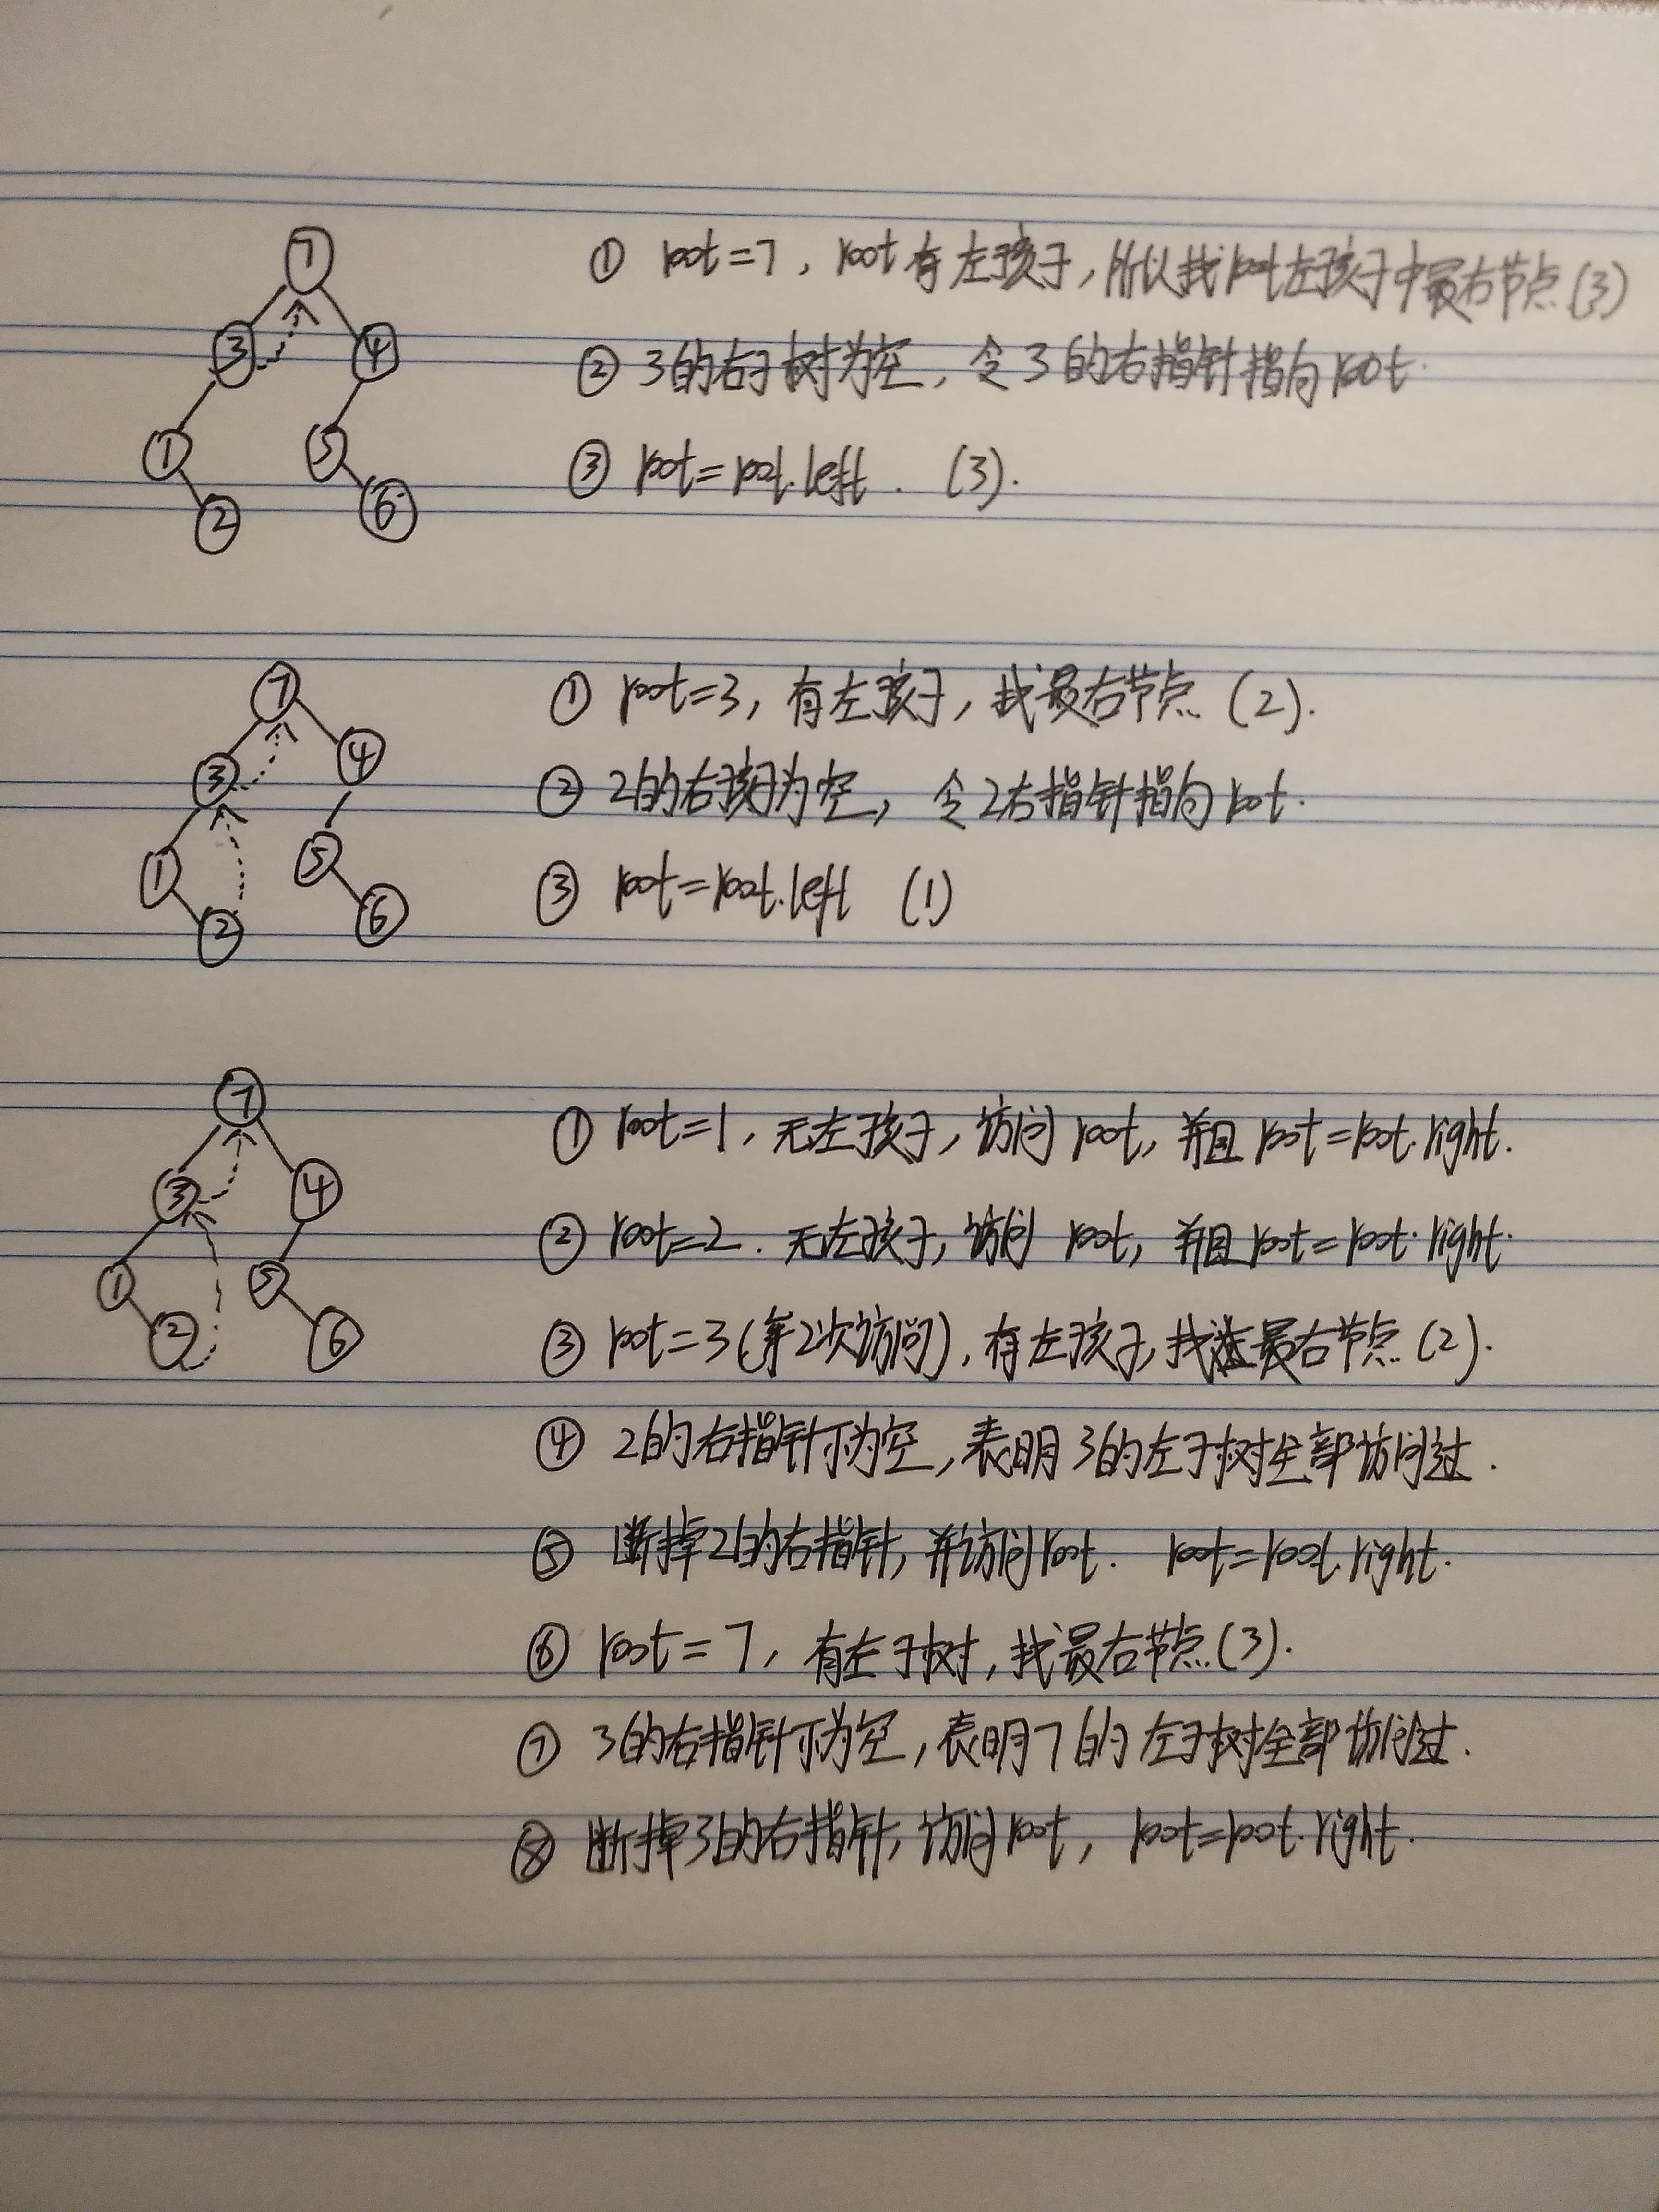 7
3 4
1 5
2 6
① root=7, root有左孩子,所以找root左孩子中最右节点(3)
② 3的右子树为空,令3的右指针指向root.
③ root=root.left. (3).
7
3 4
1 5
2 6
① root=3,有左孩子,找最右节点(2).
② 2的右孩子为空,令2右指针指向root.
③ root=root.left (1)
7
3 4
1 5
2 6
① root=1,无左孩子,访问root,并且root=root.right.
② root=2.无左孩子,访问root,并且root=root.right.
③ root=3(第2次访问),有左孩子,找最右节点(2).
④ 2的右指针不为空,表明3的左子树全部访问过.
⑤ 断掉2的右指针,并访问root. root=root.right.
⑥ root=7,有左子树,找最右节点(3).
⑦ 3的右指针不为空,表明7的左子树全部访问过.
⑧ 断掉3的右指针,访问root, root=root.right.